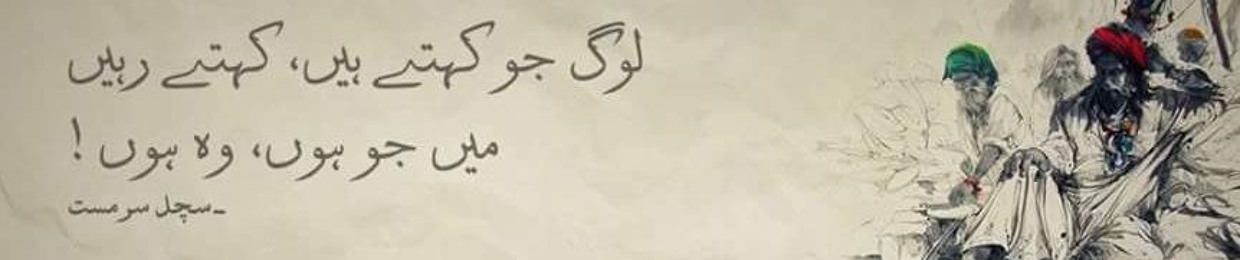 لوگ جو کہتے ہیں، کہتے رہیں
میں جو ہوں، وہ ہوں !
-سچل سرمست